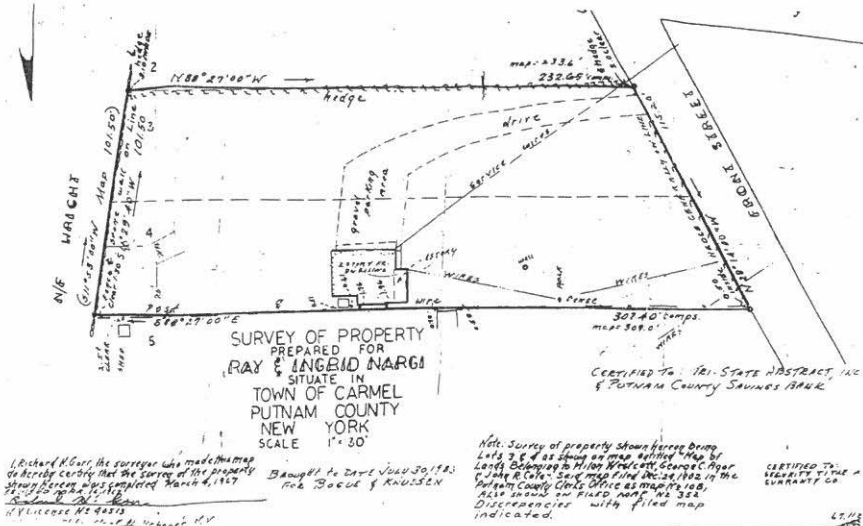 2
N 88° 27' 00" W
map = 233.6'
232.65' comp.
hedge
hedge
drive
115.20'
FRONT STREET
Map 101.50'
101.50'
3
N/F WRIGHT
4
gravel parking area
service wires
1 STORY
WELL
WIRES
WIRES
POLE
FENCE
POST
8
WIRE
S 88° 27' 00" E
307.40' comps.
map = 309.0'
WIRES
5
CLEAR
SHED
SURVEY OF PROPERTY
PREPARED FOR
RAY & INGRID NARGI
SITUATE IN
TOWN OF CARMEL
PUTNAM COUNTY
NEW YORK
SCALE 1" = 30'
CERTIFIED TO: TRI-STATE ABSTRACT, INC
& PUTNAM COUNTY SAVINGS BANK
I, Richard H. Gorr, the surveyor who made this map
do hereby certify that the survey of the property
shown hereon was completed March 4, 1967
N.Y. LICENSE Nº 40513
BROUGHT TO DATE JULY 30, 1983
FOR BOGUE & KNUDSEN
Note: Survey of property shown hereon being
Lots 3 & 4 as shown on map entitled "Map of
Lands Belonging to Milon Westcott, George C. Agor
& John R. Cole". Said map filed Dec. 24, 1902 in the
Putnam County Clks Office as map Nº 108,
ALSO SHOWN ON FILED MAP Nº 352
Discrepancies with filed map
indicated.
CERTIFIED TO:
SECURITY TITLE &
GUARANTY CO.